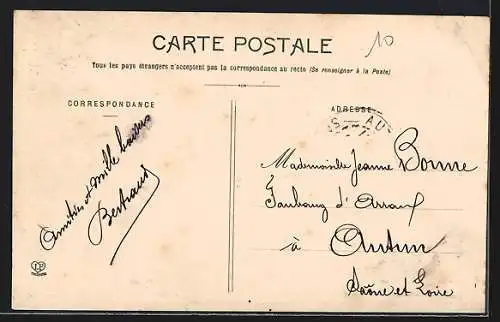 CARTE POSTALE
10
Tous les pays étrangers n'acceptent pas la correspondance au recto (Se renseigner à la Poste)
CORRESPONDANCE
ADRESSE
AU
Amitiés et Mille baisers
Bertrand
Mademoiselle Jeanne Bonne
Faubourg d'Arroux
à
Autun
Saône et Loire